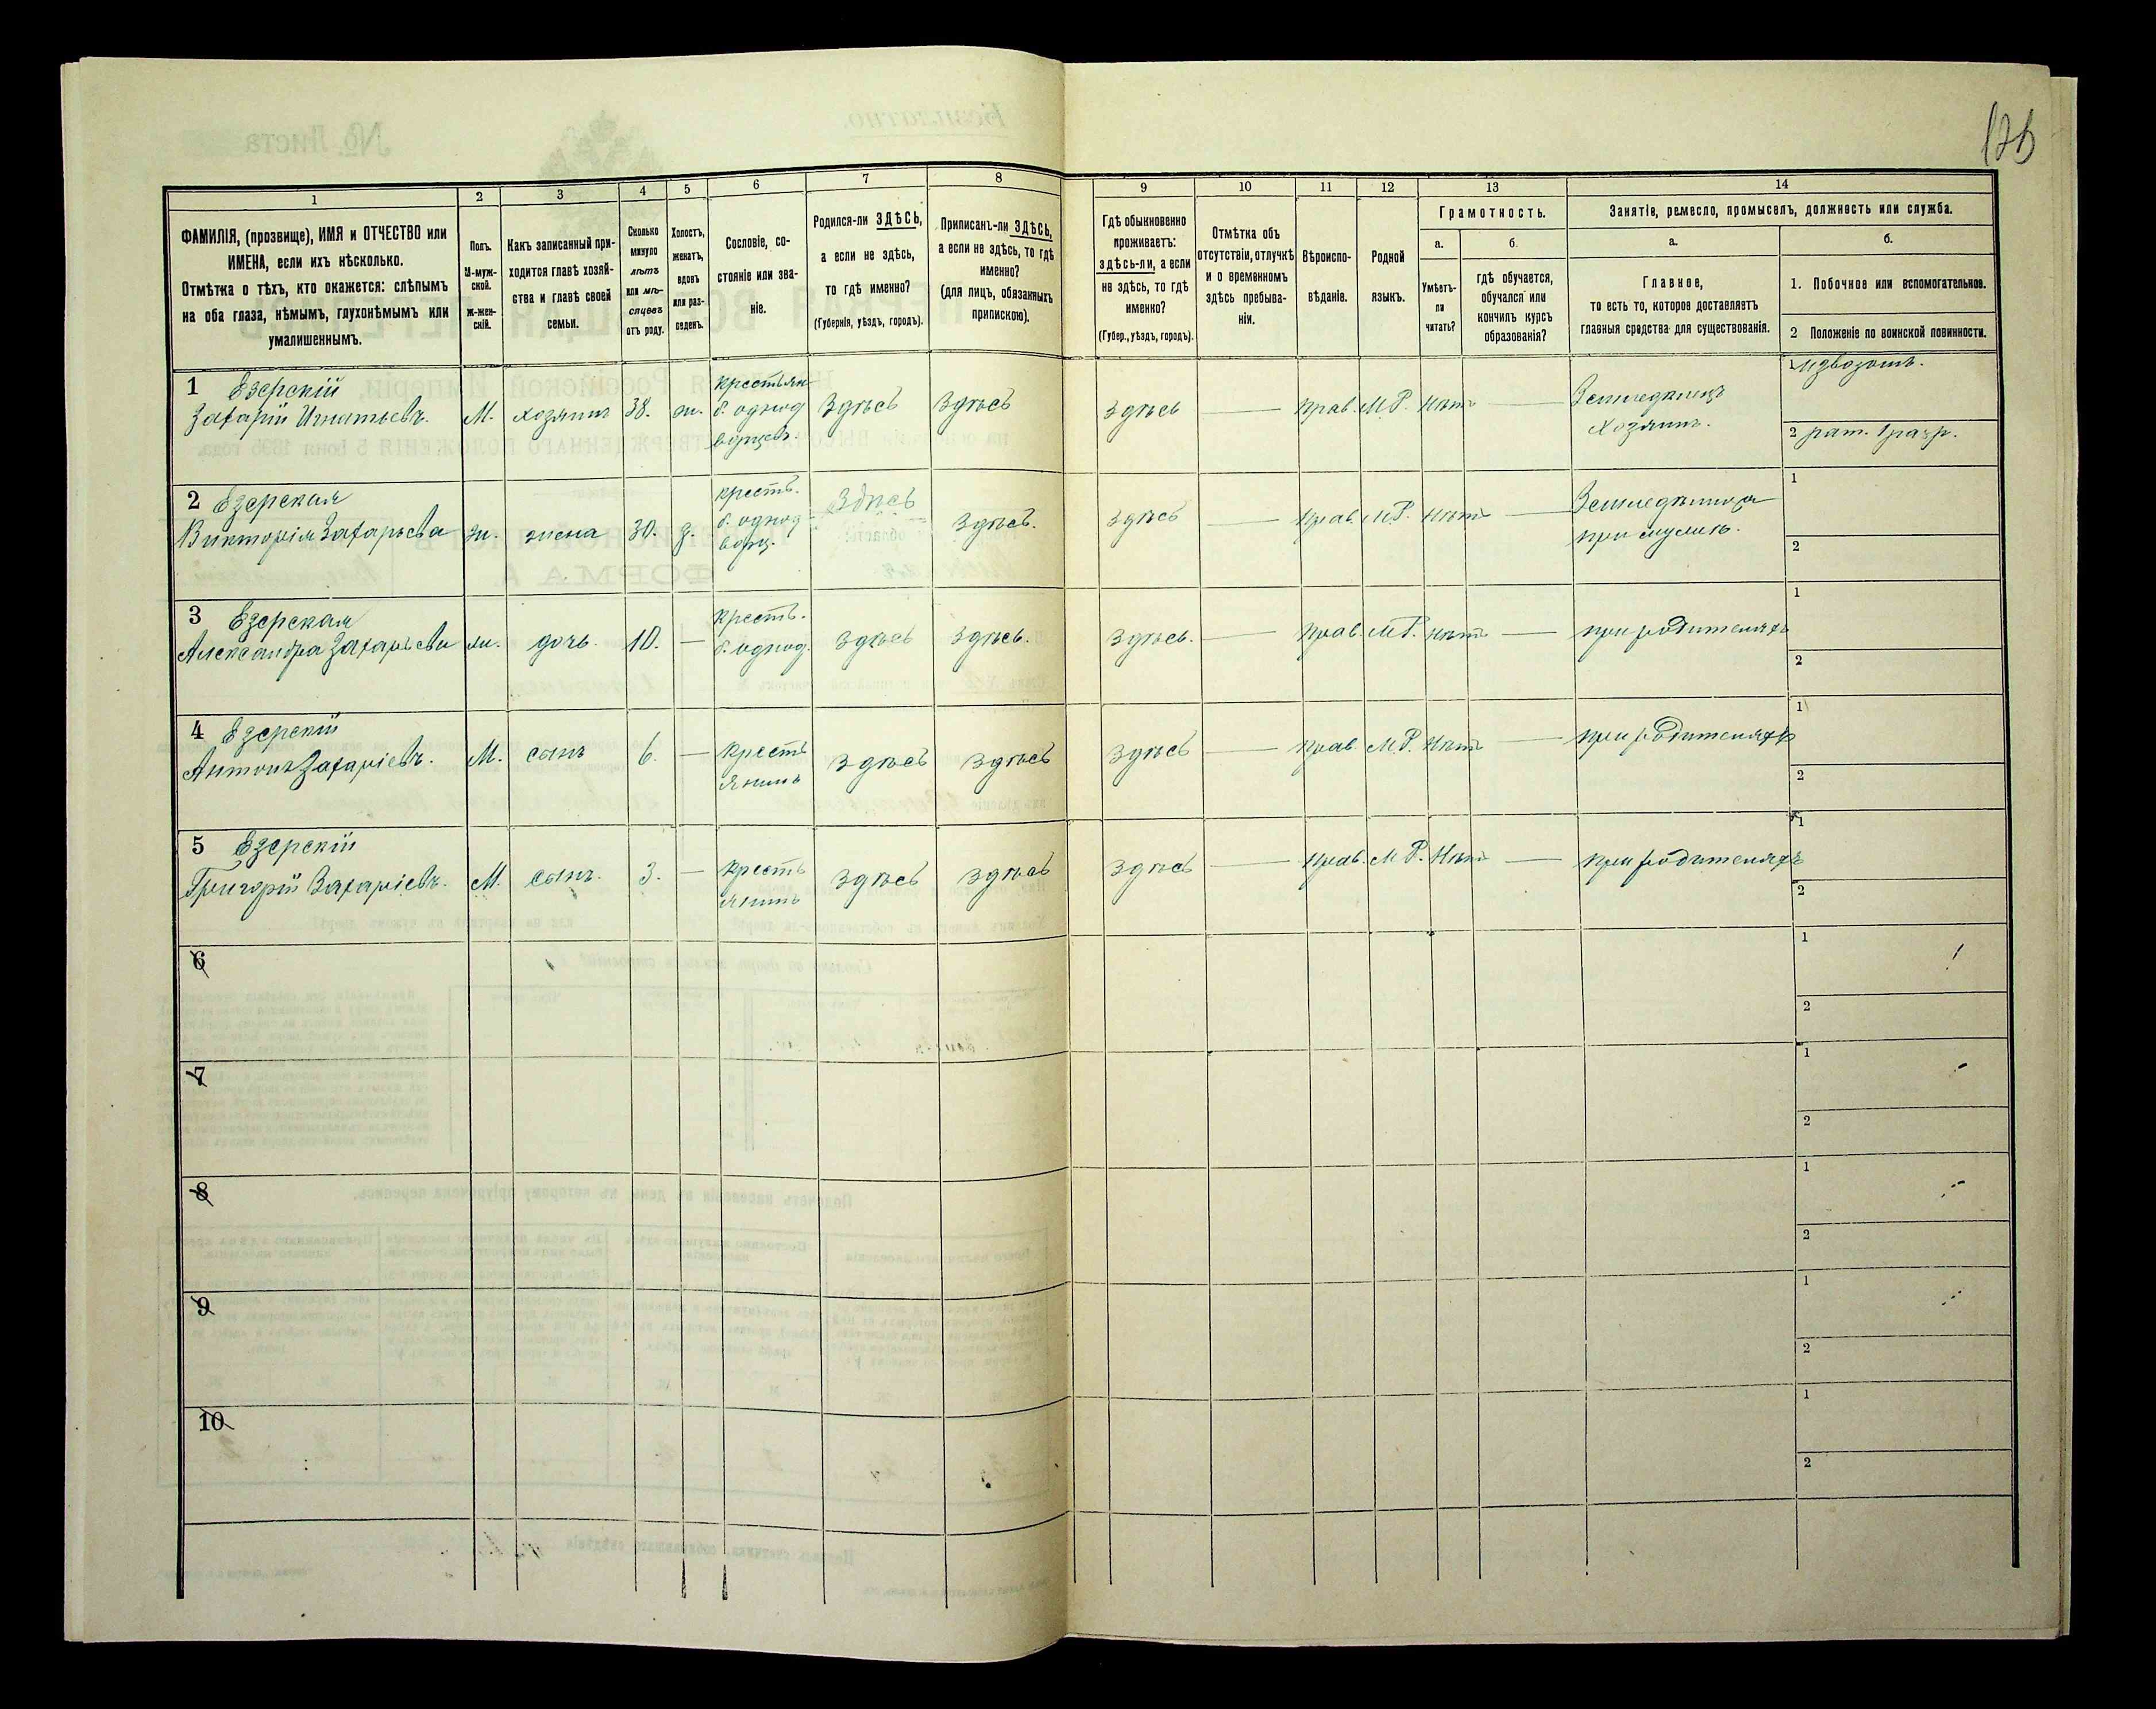 126
1 2 3 4 5 6 7 8 9 10 11 12 13 14
ФАМИЛІЯ, (прозвище), ИМЯ и ОТЧЕСТВО или
ИМЕНА, если ихъ нѣсколько.
Отмѣтка о тѣхъ, кто окажется: слѣпымъ
на оба глаза, нѣмымъ, глухонѣмымъ или
умалишеннымъ.
Полъ.
М-муж-
ской.
Ж-жен-
скій.
Какъ записанный при-
ходится главѣ хозяй-
ства и главѣ своей
семьи.
Сколько
минуло
лѣтъ
или мѣ-
сяцевъ
отъ роду.
Холостъ,
женатъ,
вдовъ
или раз-
веденъ.
Сословіе, со-
стояніе или зва-
ніе.
Родился-ли ЗДѢСЬ,
а если не здѣсь,
то гдѣ именно?
(Губернія, уѣздъ, городъ).
Приписанъ-ли ЗДѢСЬ,
а если не здѣсь, то гдѣ
именно?
(для лицъ, обязанныхъ
припискою).
Гдѣ обыкновенно
проживаетъ:
здѣсь-ли, а если
не здѣсь, то гдѣ
именно?
(Губер., уѣздъ, городъ).
Отмѣтка объ
отсутствіи, отлучкѣ
и о временномъ
здѣсь пребыва-
ніи.
Вѣроиспо-
вѣданіе.
Родной
языкъ.
Грамотность.
а.
Умѣетъ-
ли
читать?
б.
гдѣ обучается,
обучался или
кончилъ курсъ
образованія?
Занятіе, ремесло, промыселъ, должность или служба.
а.
Главное,
то есть то, которое доставляетъ
главныя средства для существованія.
б.
1. Побочное или вспомогательное.
2 Положеніе по воинской повинности.
1 Езерскій
Захарій Игнатьевъ. М. хозяинъ 38. ж. крестьян
б. однод
ворцевъ. Здѣсь Здѣсь Здѣсь — Прав. М.Р. Нѣтъ — Земледѣлецъ
хозяинъ. 1 извозомъ.
2 рат. 1 разр.
2 Езерская
Викторія Захарьева ж. жена 30. з. крест.
б. однод
ворц. Здѣсь Здѣсь. Здѣсь — Прав. М.Р. Нѣтъ — Земледѣлица
при мужѣ. 1
2
3 Езерская
Александра Захарьевн ж. дочь. 10. — крест.
б. однод. Здѣсь Здѣсь. Здѣсь. — Прав. М.Р. Нѣтъ — при родителяхъ 1
2
4 Езерскій
Антонъ Захаріевъ. М. сынъ 6. — Кресть
янинъ Здѣсь Здѣсь Здѣсь — Прав М.Р. Нѣтъ — при родителяхъ 1
2
5 Езерскій
Григорій Захаріевъ. М. сынъ. 3. — Кресть
янинъ Здѣсь Здѣсь Здѣсь — Прав. М.Р. Нѣтъ — при родителяхъ 1
2
6 1
2
7 1
2
8 1
2
9 1
2
10 1
2